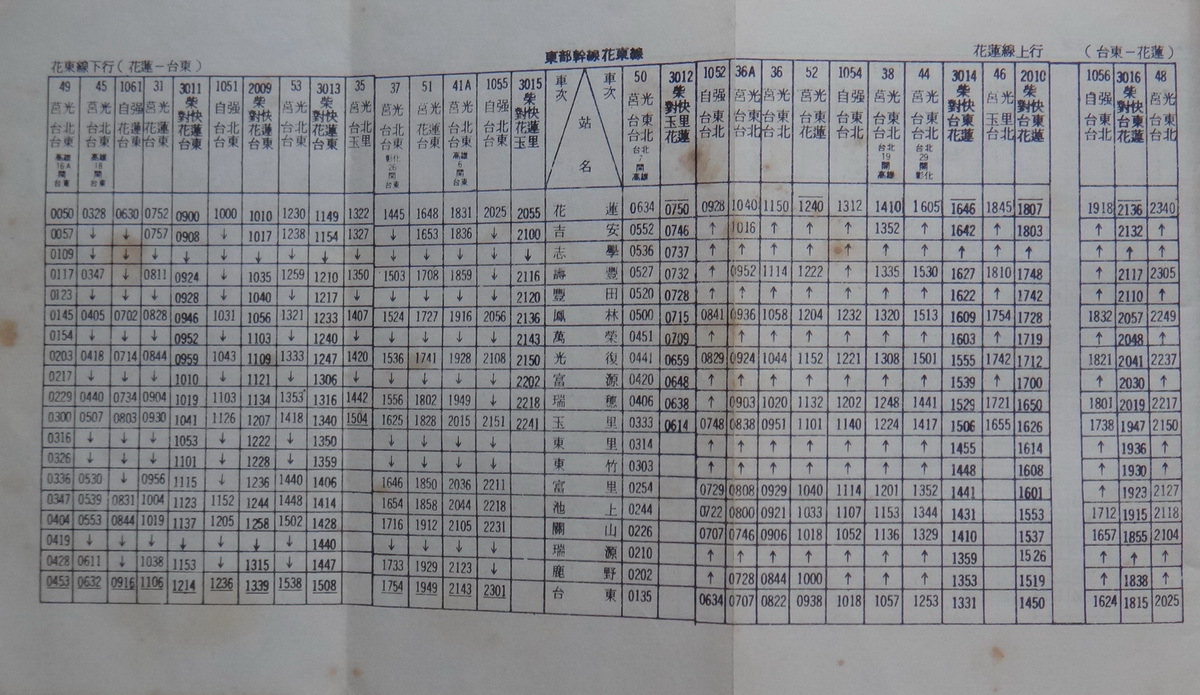 東部幹線花東線
花東線下行(花蓮－台東)
花蓮線上行 (台東－花蓮)
49 45 1061 31 3011 1051 2009 53 3013 35 37 51 41A 1055 3015 車次 車次 50 3012 1052 36A 36 52 1054 38 44 3014 46 2010 1056 3016 48
莒光 莒光 自强 莒光 柴對快 自强 柴對快 莒光 柴對快 莒光 莒光 莒光 莒光 自强 柴對快 莒光 柴對快 自强 莒光 莒光 莒光 自强 莒光 莒光 柴對快 莒光 柴對快 自强 柴對快 莒光
台北台東 台北台東 花蓮台東 花蓮台東 花蓮台東 台北台東 花蓮台東 台北台東 花蓮台東 台北玉里 台北台東 花蓮台東 台北台東 台北台東 花蓮玉里 站名 台東台北 玉里花蓮 台東台北 台東台北 台東台北 台東花蓮 台東台北 台東台北 台東台北 台東花蓮 玉里台北 台東花蓮 台東台北 台東花蓮 台東台北
高雄16A開台東 高雄18開台東 彰化26開台東 高雄6開台東 台北7開高雄 台北19開高雄 台北29開彰化
0050 0328 0630 0752 0900 1000 1010 1230 1149 1322 1445 1648 1831 2025 2055 花蓮 0634 0750 0928 1040 1150 1240 1312 1410 1605 1646 1845 1807 1918 2136 2340
0057 ↓ ↓ 0757 0908 ↓ 1017 1238 1154 1327 ↓ 1653 1836 ↓ 2100 吉安 0552 0746 ↑ 1016 ↑ ↑ ↑ 1352 ↑ 1642 ↑ 1803 ↑ 2132 ↑
0109 ↓ ↓ ↓ ↓ ↓ ↓ ↓ ↓ ↓ ↓ ↓ ↓ ↓ ↓ 志學 0536 0737 ↑ ↑ ↑ ↑ ↑ ↑ ↑ ↑ ↑ ↑ ↑ ↑ ↑
0117 0347 ↓ 0811 0924 ↓ 1035 1259 1210 1350 1503 1708 1859 ↓ 2116 壽豐 0527 0732 ↑ 0952 1114 1222 ↑ 1335 1530 1627 1810 1748 ↑ 2117 2305
0123 ↓ ↓ ↓ 0928 ↓ 1040 ↓ 1217 ↓ ↓ ↓ ↓ ↓ 2120 豐田 0520 0728 ↑ ↑ ↑ ↑ ↑ ↑ ↑ 1622 ↑ 1742 ↑ 2110 ↑
0145 0405 0702 0828 0946 1031 1056 1321 1233 1407 1524 1727 1916 2056 2136 鳳林 0500 0715 0841 0936 1058 1204 1232 1320 1513 1609 1754 1728 1832 2057 2249
0154 ↓ ↓ ↓ 0952 ↓ 1103 ↓ 1240 ↓ ↓ ↓ ↓ ↓ 2143 萬榮 0451 0709 ↑ ↑ ↑ ↑ ↑ ↑ ↑ 1603 ↑ 1719 ↑ 2048 ↑
0203 0418 0714 0844 0959 1043 1109 1333 1247 1420 1536 1741 1928 2108 2150 光復 0441 0659 0829 0924 1044 1152 1221 1308 1501 1555 1742 1712 1821 2041 2237
0217 ↓ ↓ ↓ 1010 ↓ 1121 ↓ 1306 ↓ ↓ ↓ ↓ ↓ 2202 富源 0420 0648 ↑ ↑ ↑ ↑ ↑ ↑ ↑ 1539 ↑ 1700 ↑ 2030 ↑
0229 0440 0734 0904 1019 1103 1134 1353 1316 1442 1556 1802 1949 ↓ 2218 瑞穗 0406 0638 ↑ 0903 1020 1132 1202 1248 1441 1529 1721 1650 1801 2019 2217
0300 0507 0803 0930 1041 1126 1207 1418 1340 1504 1625 1828 2015 2151 2241 玉里 0333 0614 0748 0838 0951 1101 1140 1224 1417 1506 1655 1626 1738 1947 2150
0316 ↓ ↓ ↓ 1053 ↓ 1222 ↓ 1350 ↓ ↓ ↓ ↓ 東里 0314 ↑ ↑ ↑ ↑ ↑ ↑ ↑ 1455 1614 ↑ 1936 ↑
0326 ↓ ↓ ↓ 1101 ↓ 1228 ↓ 1359 ↓ ↓ ↓ ↓ 東竹 0303 ↑ ↑ ↑ ↑ ↑ ↑ ↑ 1448 1608 ↑ 1930 ↑
0336 0530 ↓ 0956 1115 ↓ 1236 1440 1406 1646 1850 2036 2211 富里 0254 0729 0808 0929 1040 1114 1201 1352 1441 1601 ↑ 1923 2127
0347 0539 0831 1004 1123 1152 1244 1448 1414 1654 1858 2044 2218 池上 0244 0722 0800 0921 1033 1107 1153 1344 1431 1553 1712 1915 2118
0404 0553 0844 1019 1137 1205 1258 1502 1428 1716 1912 2105 2231 關山 0226 0707 0746 0906 1018 1052 1136 1329 1410 1537 1657 1855 2104
0419 ↓ ↓ ↓ ↓ ↓ ↓ ↓ 1440 ↓ ↓ ↓ ↓ 瑞源 0210 ↑ ↑ ↑ ↑ ↑ ↑ ↑ 1359 1526 ↑ ↑ ↑
0428 0611 ↓ 1038 1153 ↓ 1315 ↓ 1447 1733 1929 2123 ↓ 鹿野 0202 ↑ 0728 0844 1000 ↑ ↑ ↑ 1353 1519 ↑ 1838 ↑
0453 0632 0916 1106 1214 1236 1339 1538 1508 1754 1949 2143 2301 台東 0135 0634 0707 0822 0938 1018 1057 1253 1331 1450 1624 1815 2025